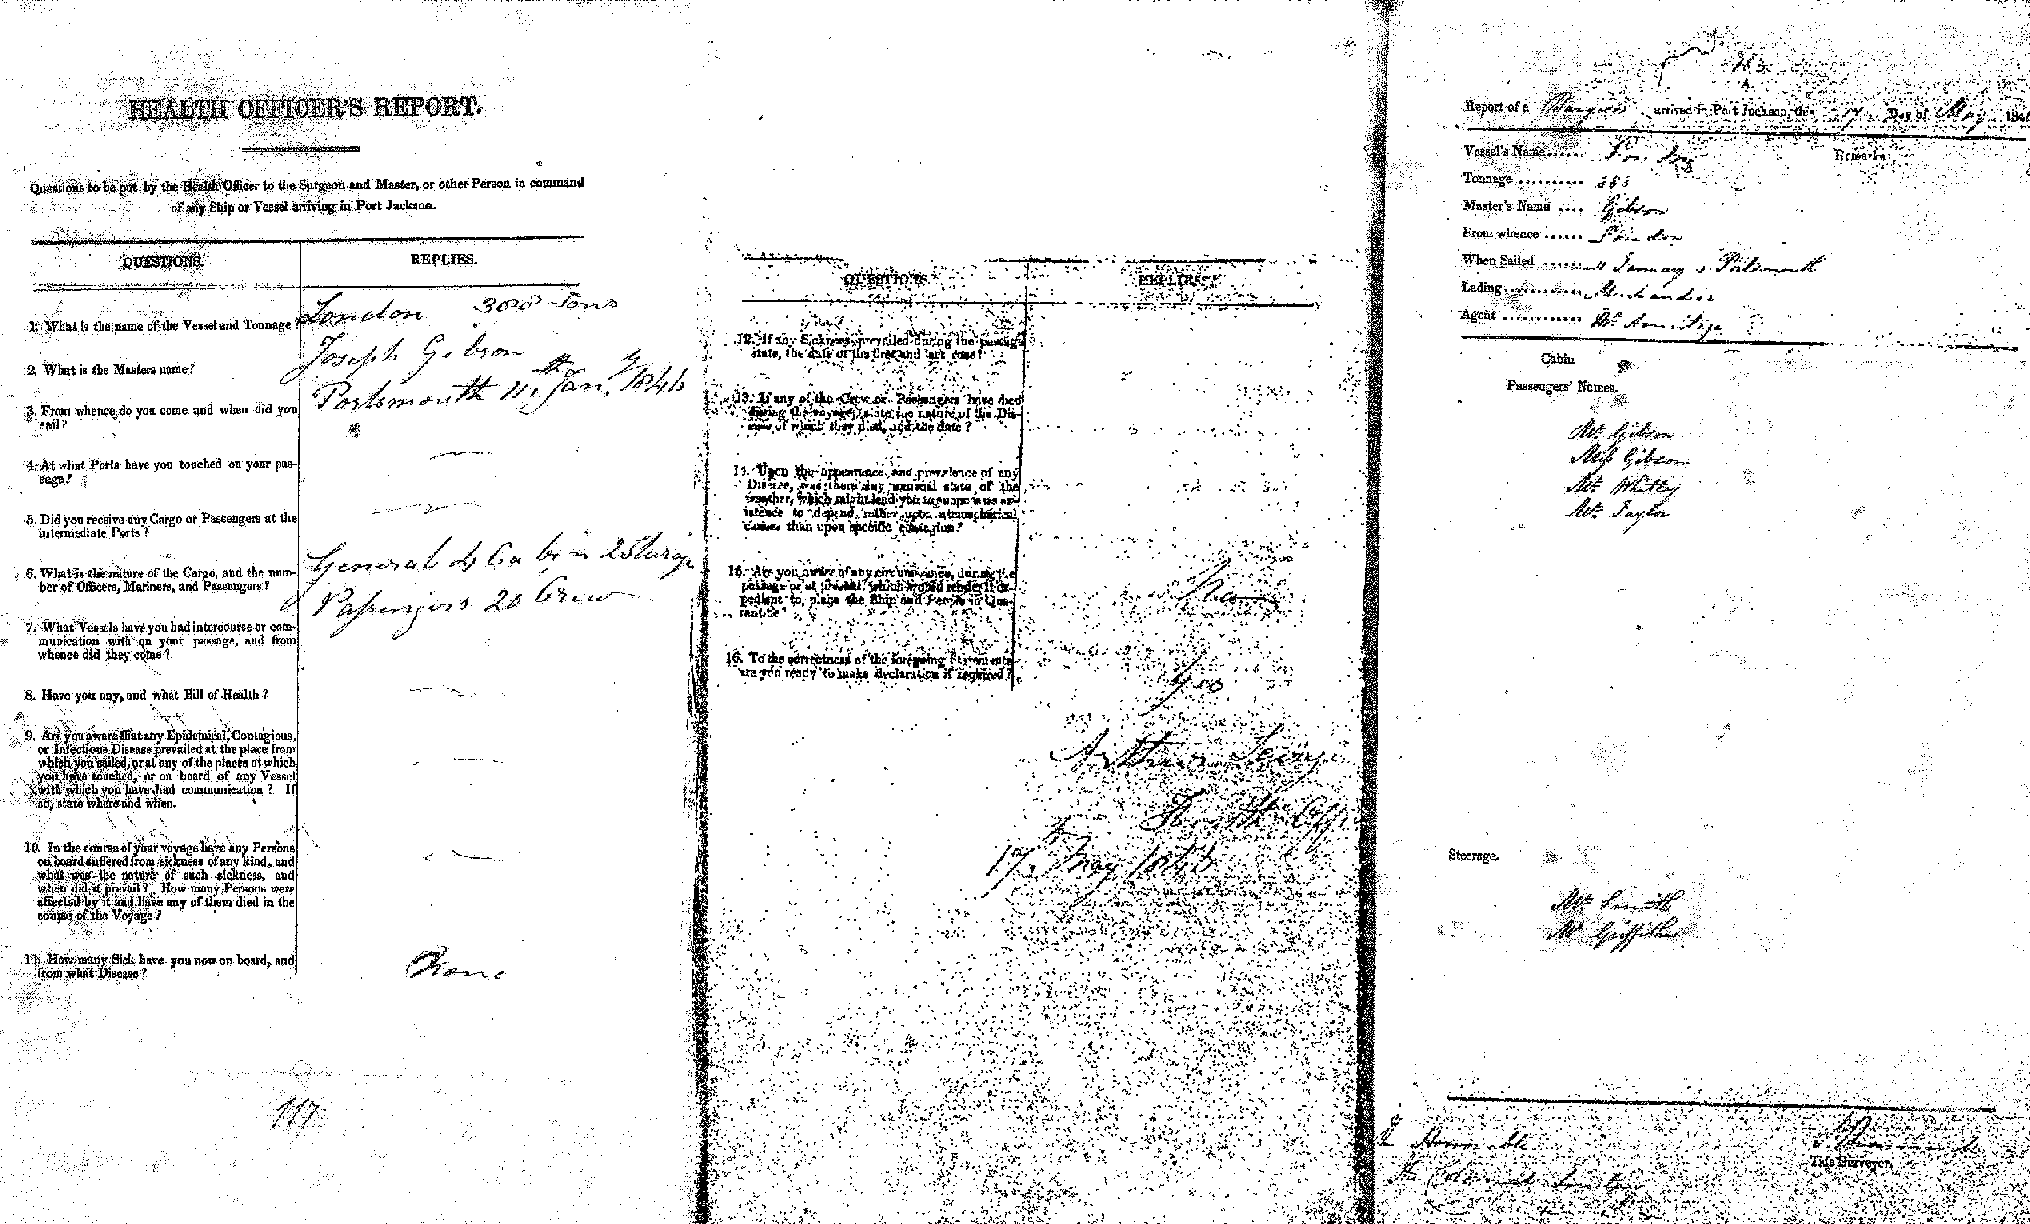 HEALTH OFFICER'S REPORT.
Questions to be put by the Health Officer to the Surgeon and Master, or other Person in command
of any Ship or Vessel arriving in Port Jackson.
QUESTIONS. REPLIES.
1. What is the name of the Vessel and Tonnage? London 388 Tons
2. What is the Masters name? Joseph Gibson
3. From whence do you come and when did you
sail? Portsmouth 11th Jany 1846
4. At what Ports have you touched on your pas-
sage?
5. Did you receive any Cargo or Passengers at the
intermediate Ports?
6. What is the nature of the Cargo, and the num-
ber of Officers, Mariners, and Passengers?
General 4 Cabin 2 Steerage
Passengers 20 Crew
7. What Vessels have you had intercourse or com-
munication with on your passage, and from
whence did they come?
8. Have you any, and what Bill of Health?
9. Are you aware that any Epidemial, Contagious,
or Infectious Disease prevailed at the place from
which you sailed, or at any of the places at which
you have touched, or on board of any Vessel
with which you have had communication? If
so, state where and when.
10. In the course of your voyage have any Persons
on board suffered from sickness of any kind, and
what was the nature of such sickness, and
when did it prevail? How many Persons were
affected by it and have any of them died in the
course of the Voyage?
11. How many Sick have you now on board, and
from what Disease? None
117
QUESTIONS. REPLIES.
12. If any Sickness prevailed during the passage
state, the date of the first and last case?
13. If any of the Crew or Passengers have died
during the voyage, state the nature of the Dis-
ease of which they died, and the date?
14. Upon the appearance and prevalence of any
Disease, was there any unusual state of the
weather, which might lead you to suppose its ex-
istence to depend, rather upon atmospherical
causes than upon specific contagion?
15. Are you aware of any circumstance, during the
passage or at present, which would render it ex-
pedient to place the Ship and Persons in Qua-
rantine? None
16. To the correctness of the foregoing Statements
are you ready to make declaration if required? Yes
Arthur
Health Offr
17th May 1846
Report of a arrived in Port Jackson, this 17 Day of May 184
Vessel's Name London Remarks
Tonnage 388
Master's Name Gibson
From whence London
When Sailed 11 January Portsmouth
Lading Merchandise
Agent Mr Armitage
Cabin
Passengers' Names.
Mr Gibson
Miss Gibson
Mr Whitty
Mr Taylor
Steerage.
Mr Smith
Mr Griffiths
The Honorable
The Colonial Secretary
This Surveyor.